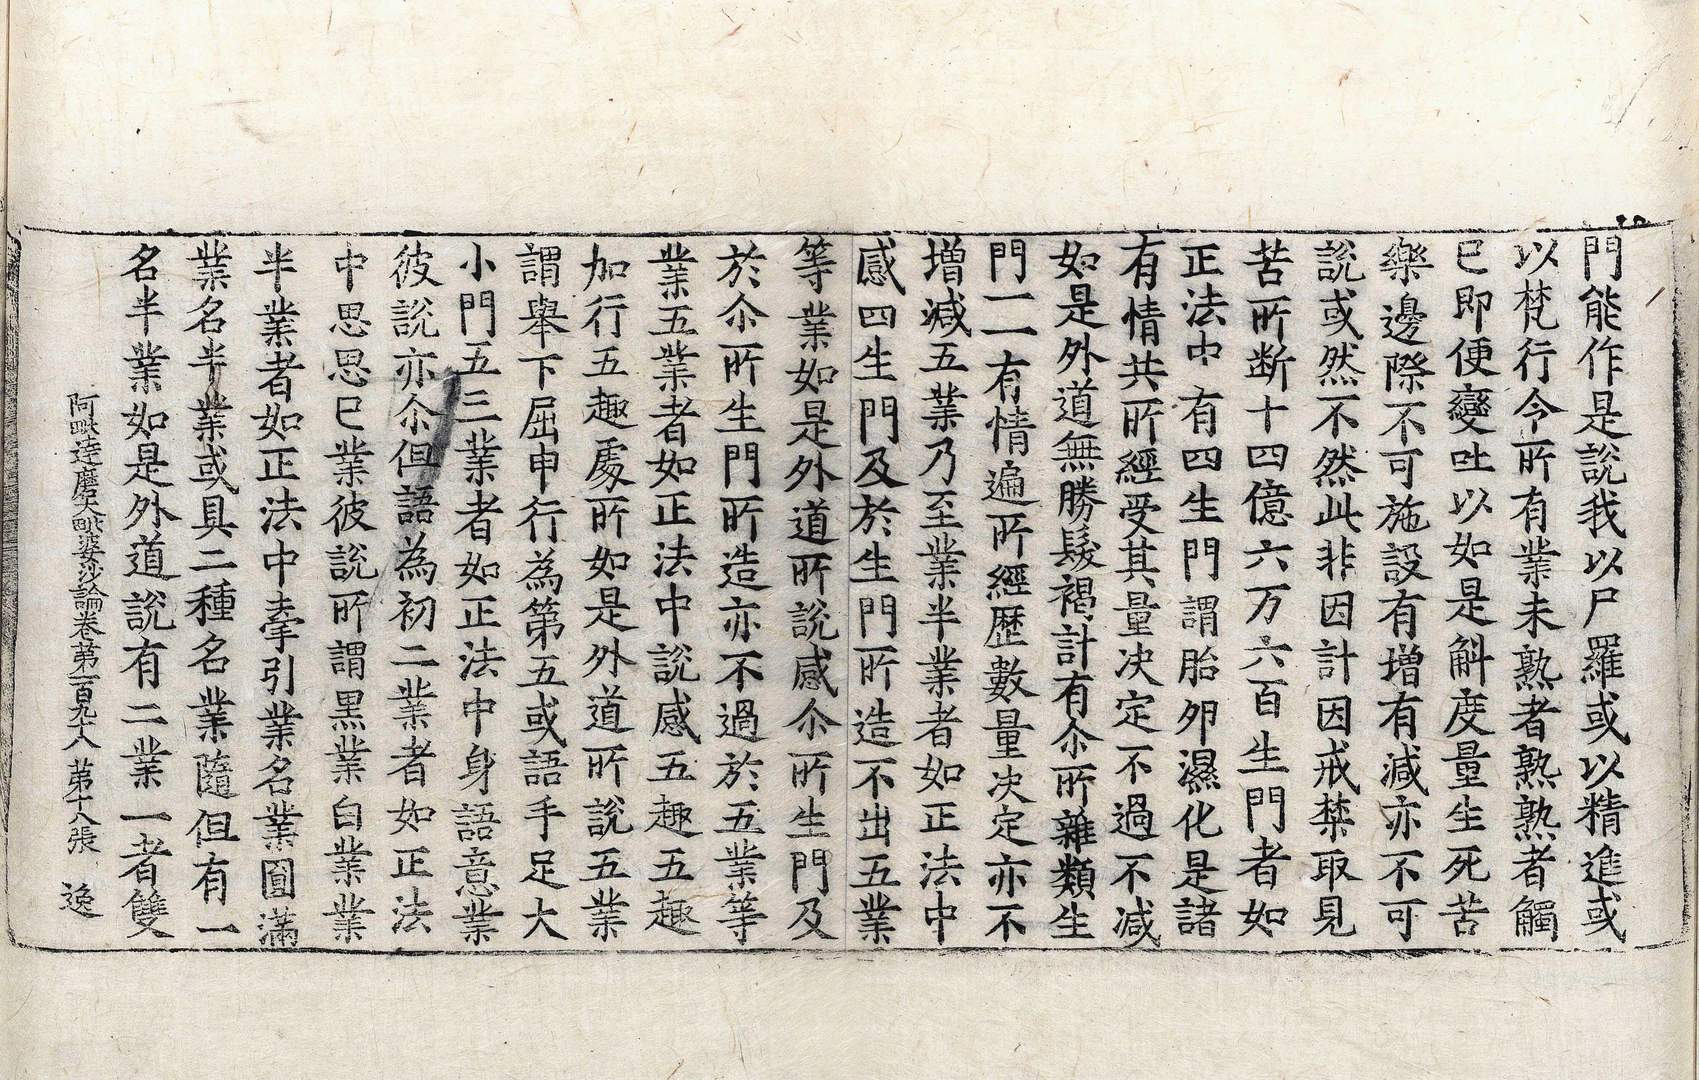 門能作是說我以尸羅或以精進或
以梵行今所有業未熟者熟熟者觸
已即便變吐以如是斛度量生死苦
樂邊際不可施設有增有減亦不可
說或然不然此非因計因戒禁取見
苦所断十四億六万六百生門者如
正法中有四生門謂胎卵濕化是諸
有情共所經受其量决定不過不减
如是外道無勝髮褐計有尒所雜類生
門一一有情遍所經歷數量决定亦不
增減五業乃至業半業者如正法中
感四生門及於生門所造不出五業
等業如是外道所說感尒所生門及
於尒所生門所造亦不過於五業等
業五業者如正法中說感五趣五趣
加行五趣處所如是外道所說五業
謂舉下屈申行為第五或語手足大
小門五三業者如正法中身語意業
彼說亦尒但語為初二業者如正法
中思思已業彼說所謂黑業白業業
半業者如正法中牽引業名業圓滿
業名半業或具二種名業隨但有一
名半業如是外道說有二業一者雙
阿毗達磨大毗婆沙論卷第一百九十八 第十八張 逸